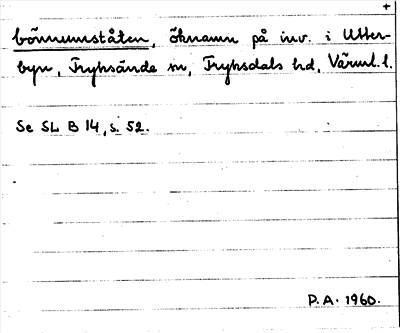 +
öknamn på inv. i Utter-
byn, Fryksände sn, Fryksdals hd, Värml. l.
Se SL B 14, s. 52.
P.A. 1960.